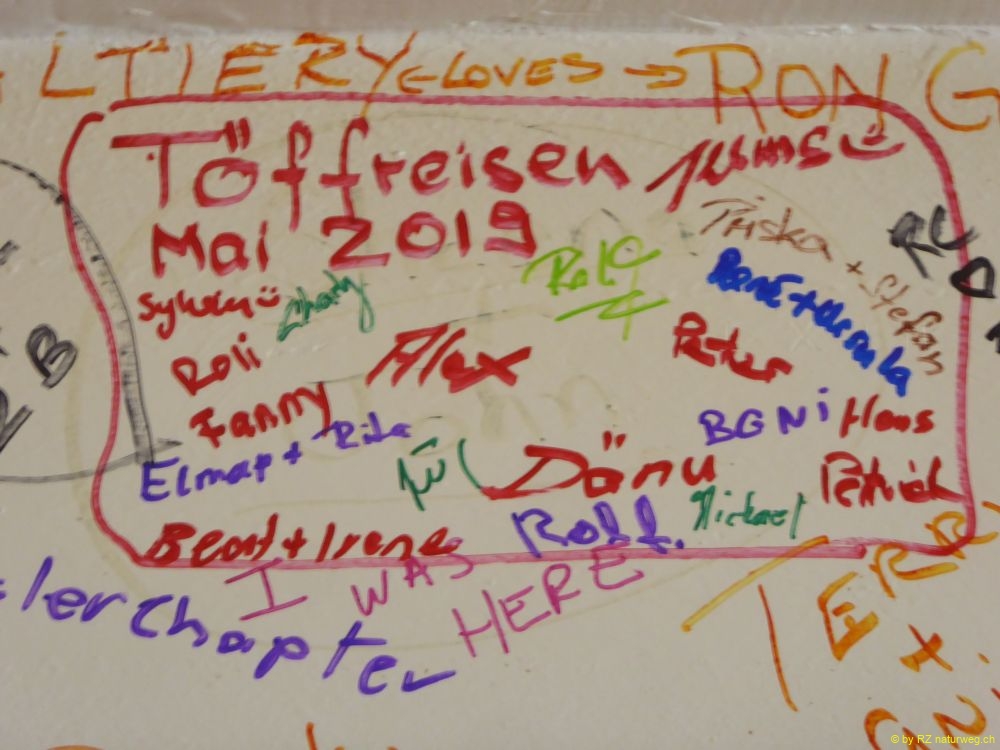 LTIERY ← LOVES → RON G
Töffreisen
Mai 2019
Rolf
Priska + Stefan
René + Ursula
Roli
Alex
Peter
Fanny
BGNi
Hans
Elmar + Rita
Dänu
Patrick
Michael
Rolf.
Beat + Irene
I WAS
HERE
ler Chapter
TERRY
B
© by RZ naturweg.ch